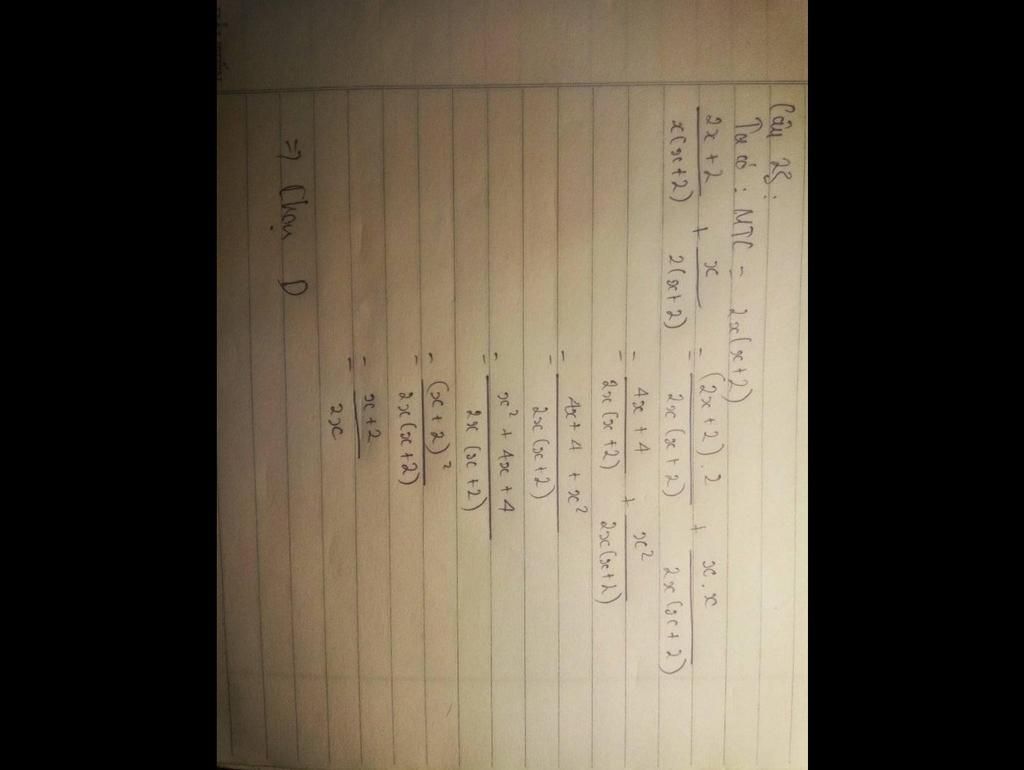 Câu 28:
Ta có: MTC = 2x(x+2)
\frac{2x+2}{x(x+2)} + \frac{x}{2(x+2)} = \frac{(2x+2).2}{2x(x+2)} + \frac{x.x}{2x(x+2)}
= \frac{4x+4}{2x(x+2)} + \frac{x^2}{2x(x+2)}
= \frac{4x+4+x^2}{2x(x+2)}
= \frac{x^2+4x+4}{2x(x+2)}
= \frac{(x+2)^2}{2x(x+2)}
= \frac{x+2}{2x}
=> Chọn D